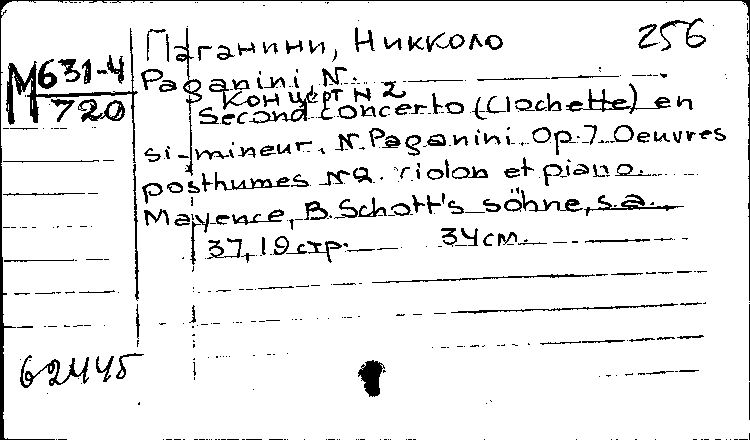 Паганини, Никколо 256
М 631-4
720
Paganini, N.
Концерт N 2
Second concerto (Clochette) en
si-mineur. N. Paganini. Op. 7. Oeuvres
posthumes N2. violon et piano.
Mayence, B. Schott's söhne, s.a.
37, 19 стр. 34 см.
62445